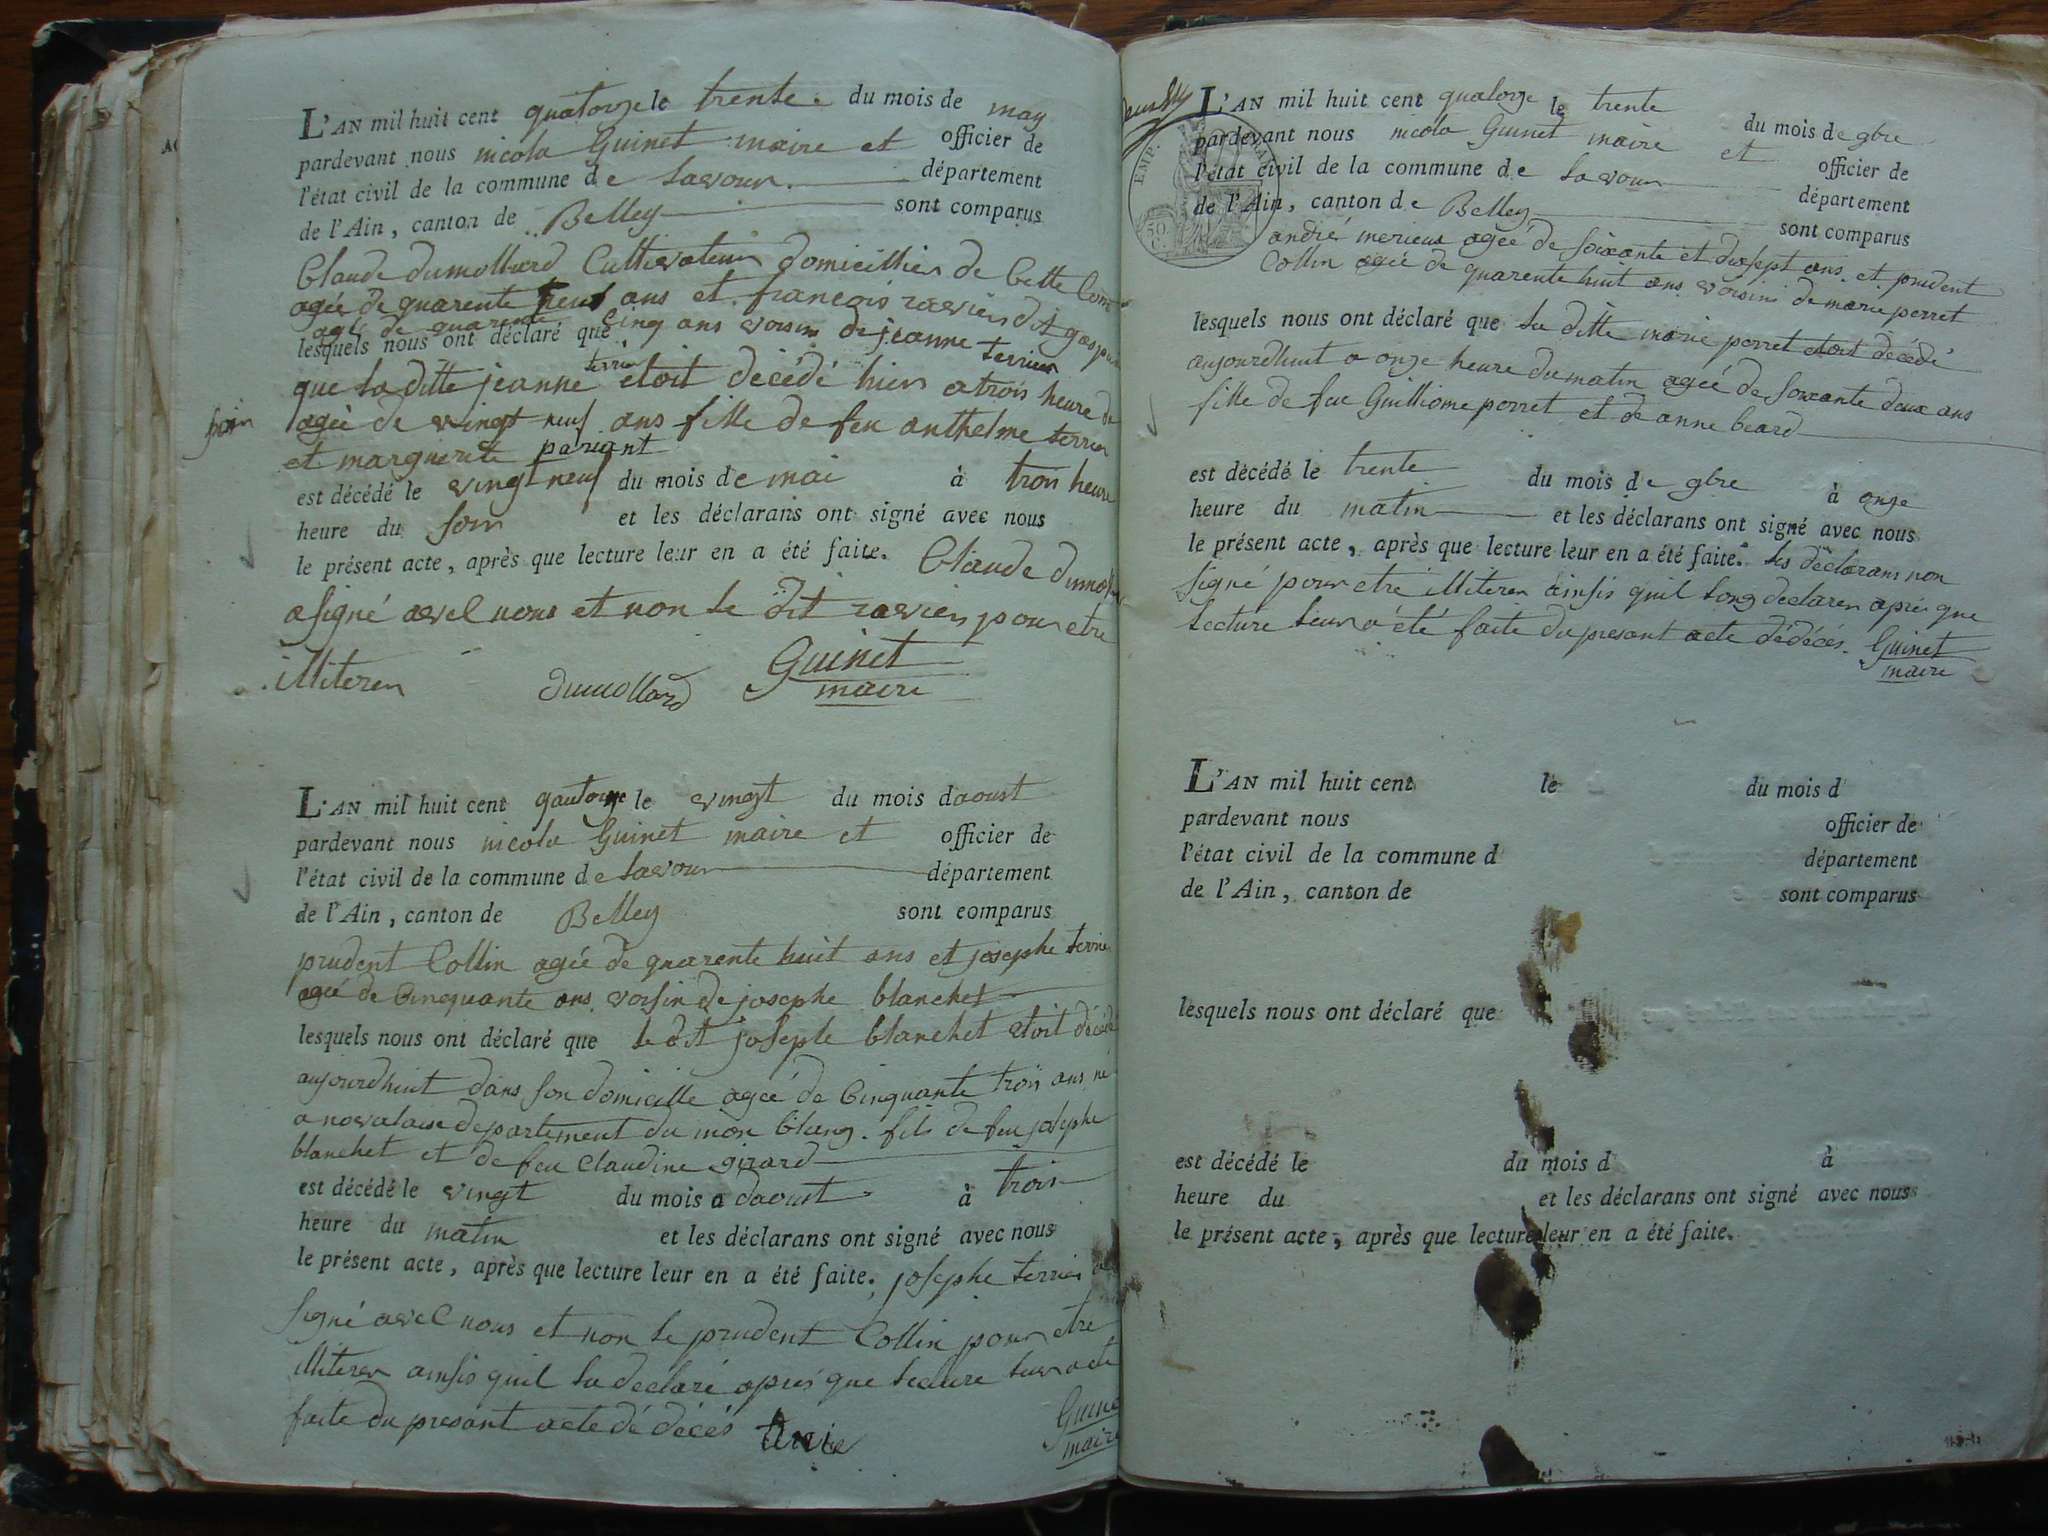 L'AN mil huit cent quatorze le trente du mois de may
pardevant nous nicola Guinet maire et officier de
l'état civil de la commune de Lavour département
de l'Ain, canton de Belley sont comparus
Claude dumollard Cultivateur domicillier de Cette Com
agée de quarente neuf ans et francois ravier dit
agé de quarente cinq ans voisin de jeanne terrier
lesquels nous ont déclaré que
que la ditte jeanne terrier etoit décédé hier a trois heure du
soir
agée de vingt neuf ans fille de feu anthelme terrier
et marguerite
est décédé le vingt neuf du mois de mai à trois heure
heure du soir et les déclarans ont signé avec nous
le présent acte, après que lecture leur en a été faite. Claude dumol
a signé avec nous et non le dit ravier pour etre
illiteren
dumollard Guinet
maire
L'AN mil huit cent qautorze le vingt du mois daoust
pardevant nous nicola Guinet maire et officier de
l'état civil de la commune de Lavour département
de l'Ain, canton de Belley sont comparus
prudent Collin agée de quarente huit ans et josephe terrier
agée de Cinquante ans voisin de josephe blanchet
lesquels nous ont déclaré que le dit josephe blanchet etoit décédé
aujourdhuit dans son domicille agée de Cinquante trois ans né
a novalaise departement du mon blang. fils de feu josephe
blanchet et de feu Claudine girard
est décédé le vingt du mois d daoust à trois
heure du matin et les déclarans ont signé avec nous
le présent acte, après que lecture leur en a été faite. josephe terrier a
signé avec nous et non le prudent Collin pour etre
illiteren ainsis quil la declaré apres que lecture leur a été
faite du presant acte dé décés
Guine
maire
L'AN mil huit cent quatorze le trente du mois de gbre
pardevant nous nicola Guinet maire et officier de
EMP.
l'état civil de la commune de Lavour département
de l'Ain, canton de Belley sont comparus
50
C.
andré merieux agée de soixante et dixsept ans et prudent
Collin agée de quarente huit ans voisins de marie perret
lesquels nous ont déclaré que la ditte marie perret etoit décédé
aujourdhuit a onze heure du matin agée de soixante deux ans
fille de feu Guilliome perret et de anne beard
est décédé le trente du mois de gbre à onze
heure du matin et les déclarans ont signé avec nous
le présent acte, après que lecture leur en a été faite. les déclarans non
signé pour etre illiteren ainsis quil long declaren aprés que
lecture leur a été faite du presant acte dédécés. Guinet
maire
L'AN mil huit cent le du mois d
pardevant nous officier de
l'état civil de la commune d département
de l'Ain, canton de sont comparus
lesquels nous ont déclaré que
est décédé le du mois d à
heure du et les déclarans ont signé avec nous
le présent acte, après que lecture leur en a été faite.